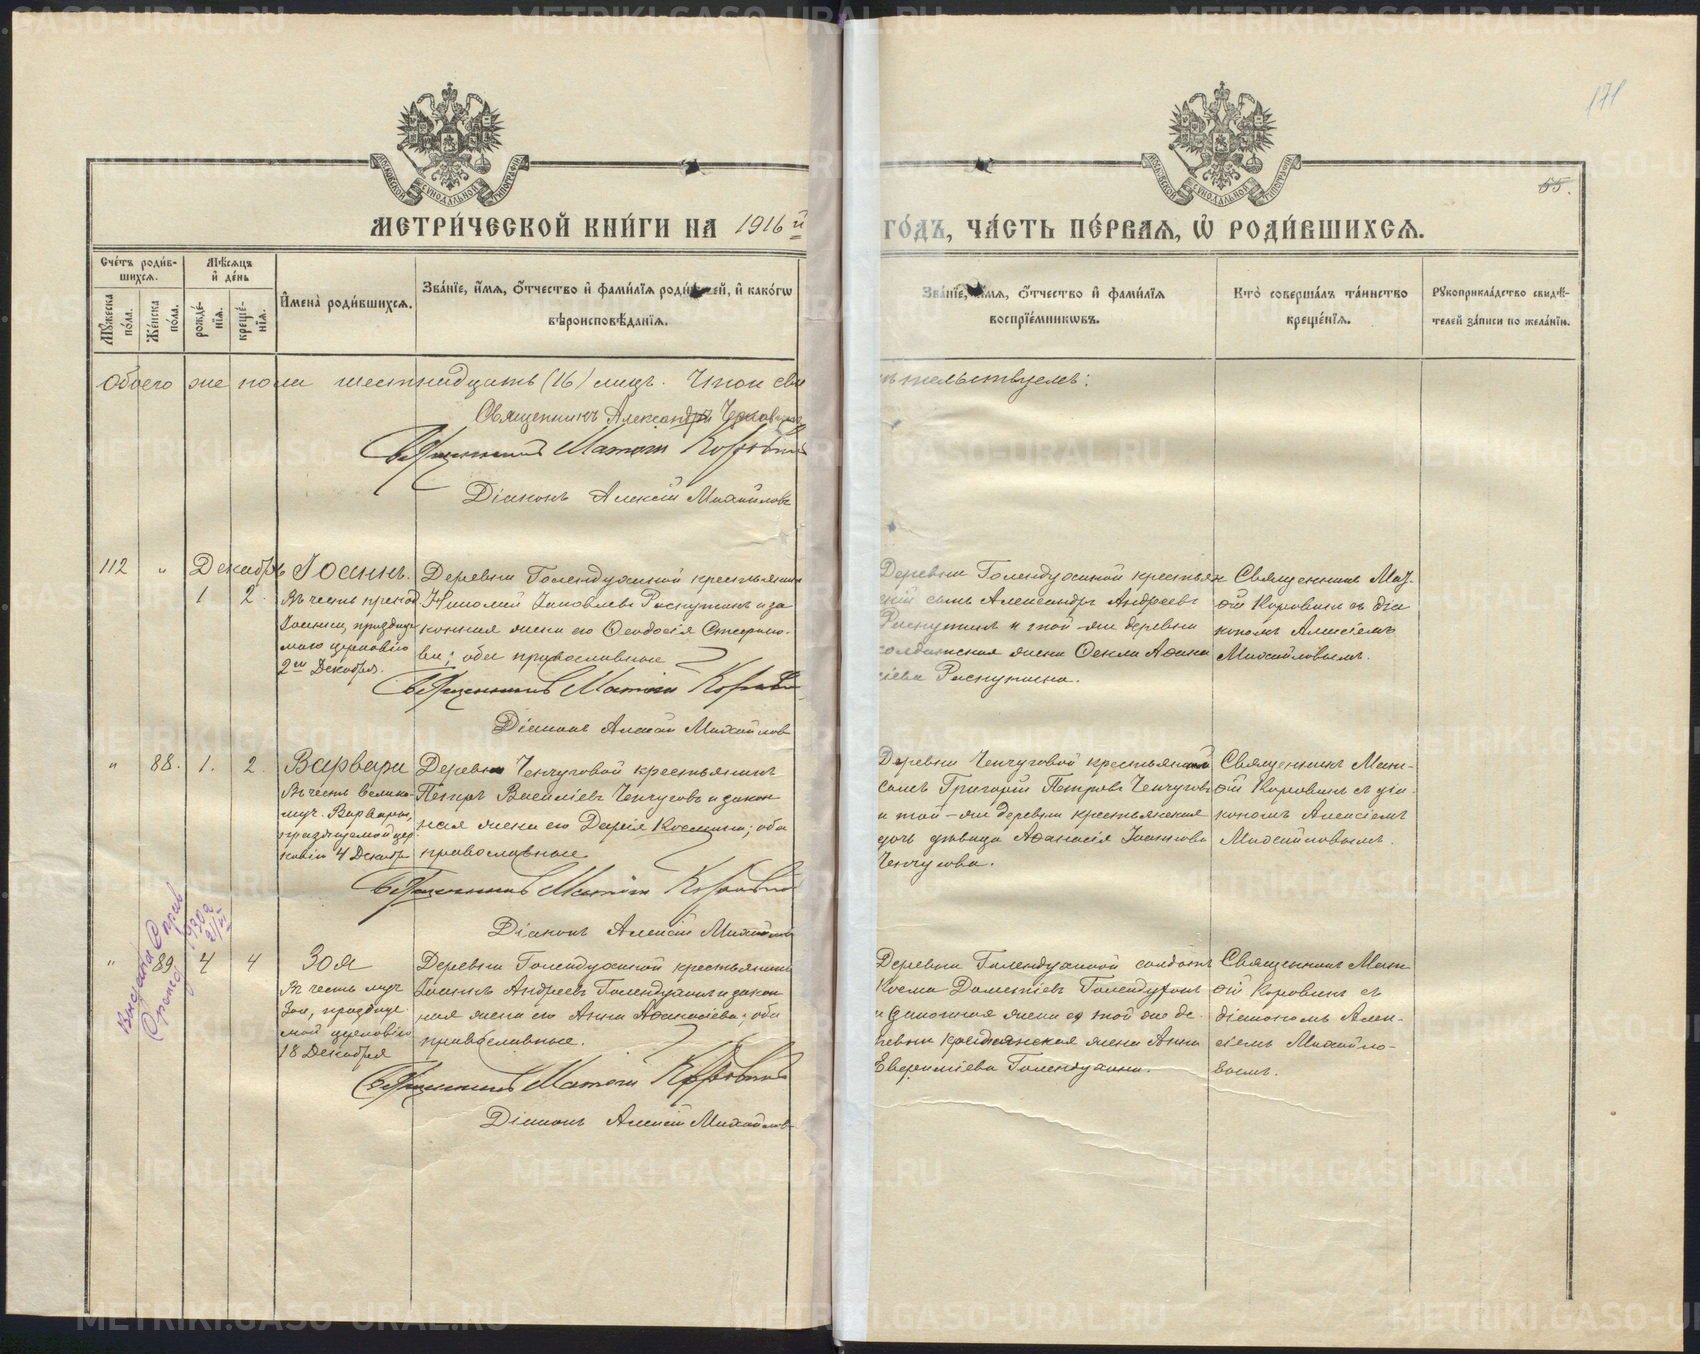 171
55.
МОСКОВСКОЙ СѴНОДАЛЬНОЙ ТИПОГРАФІИ
МОСКОВСКОЙ СѴНОДАЛЬНОЙ ТИПОГРАФІИ
МЕТРИ́ЧЕСКОЙ КНИ́ГИ НА 1916й
ГО́ДЪ, ЧА́СТЬ ПЕ́РВАѦ, Ѡ҆ РОДИ́ВШИХСѦ.
Сче́тъ роди́в-
шихсѧ.
Мꙋ́жеска по́ла.
Же́нска по́ла.
Мѣ́сѧцъ
и҆ де́нь
рожде́-
нїѧ.
креще́-
нїѧ.
И҆мена̀ роди́вшихсѧ.
Зва́нїе, и҆́мѧ, ѻ҆́тчество и҆ фами́лїѧ роди́телей, и҆ како́гѡ
вѣроисповѣ́данїѧ.
Зва́нїе, и҆́мѧ, ѻ҆́тчество и҆ фами́лїѧ
воспрїе́мникѡвъ.
Кто̀ соверша́лъ та́инство
креще́нїѧ.
Рꙋкоприкла́дство свидѣ́-
телей за́писи по жела́нїю.
Обоего же пола шестнадцать (16) лицъ. Въ томъ сви
дѣтельствуемъ:
Священникъ Александръ
Священникъ Матѳій Коровинъ
Діаконъ Алексій Михайловъ
112 „ Декабрь
1 2.
Іоаннъ.
Въ честь препод
Іоанна, праздну
маго церковію
2го Декабря.
Деревни Голендухиной крестьянинъ
Николай Іаковлевъ Распутинъ и за
конная жена его Ѳеодосія
ва; оба православные
Священникъ Матѳій Коровинъ
Діаконъ Алексій Михайловъ
Деревни Голендухиной крестьян
скій сынъ Александръ Андреевъ
Распутинъ и той-же деревни
солдатская жена Ѳекла Аѳана
сіева Распутина.
Священникъ Мат-
ѳій Коровинъ съ діа
кономъ Алексіемъ
Михайловымъ.
„ 88. 1. 2.
Варвара
Въ честь велико-
муч. Варвары,
празднуемой цер
ковію 4 Декабр
Деревни Ченчуговой крестьянинъ
Петръ Василіевъ Ченчуговъ и закон
ная жена его Дарія Космина; оба
православные
Священникъ Матѳій Коровинъ
Діаконъ Алексій Михайловъ
Деревни Ченчуговой крестьянскій
сынъ Григорій Петровъ Ченчуговъ
и той-же деревни крестьянская
дочь дѣвица Аѳанасія Іоаннова
Ченчугова.
Священникъ Мат-
ѳій Коровинъ съ діа-
кономъ Алексіемъ
Михайловымъ.
Выдана справ
1930 г.
„ 89 4 4
Зоя
Въ честь муч
Зои, праздуе
мой церковію
18 Декабря
Деревни Голендухиной крестьянинъ
Іоаннъ Андреевъ Голендухинъ и закон
ная жена его Анна Аѳанасіева; оба
православные.
Священникъ Матѳій Коровинъ
Діаконъ Алексій Михайловъ
Деревни Голендухиной солдатъ
Косма Дометіевъ Голендухинъ
и законная жена его той же де-
ревни крестьянская жена Анна
Евфиміева Голендухина.
Священникъ Мат-
ѳій Коровинъ съ
діакономъ Алек-
сіемъ Михайло-
вымъ.
METRIKI.GASO-URAL.RU